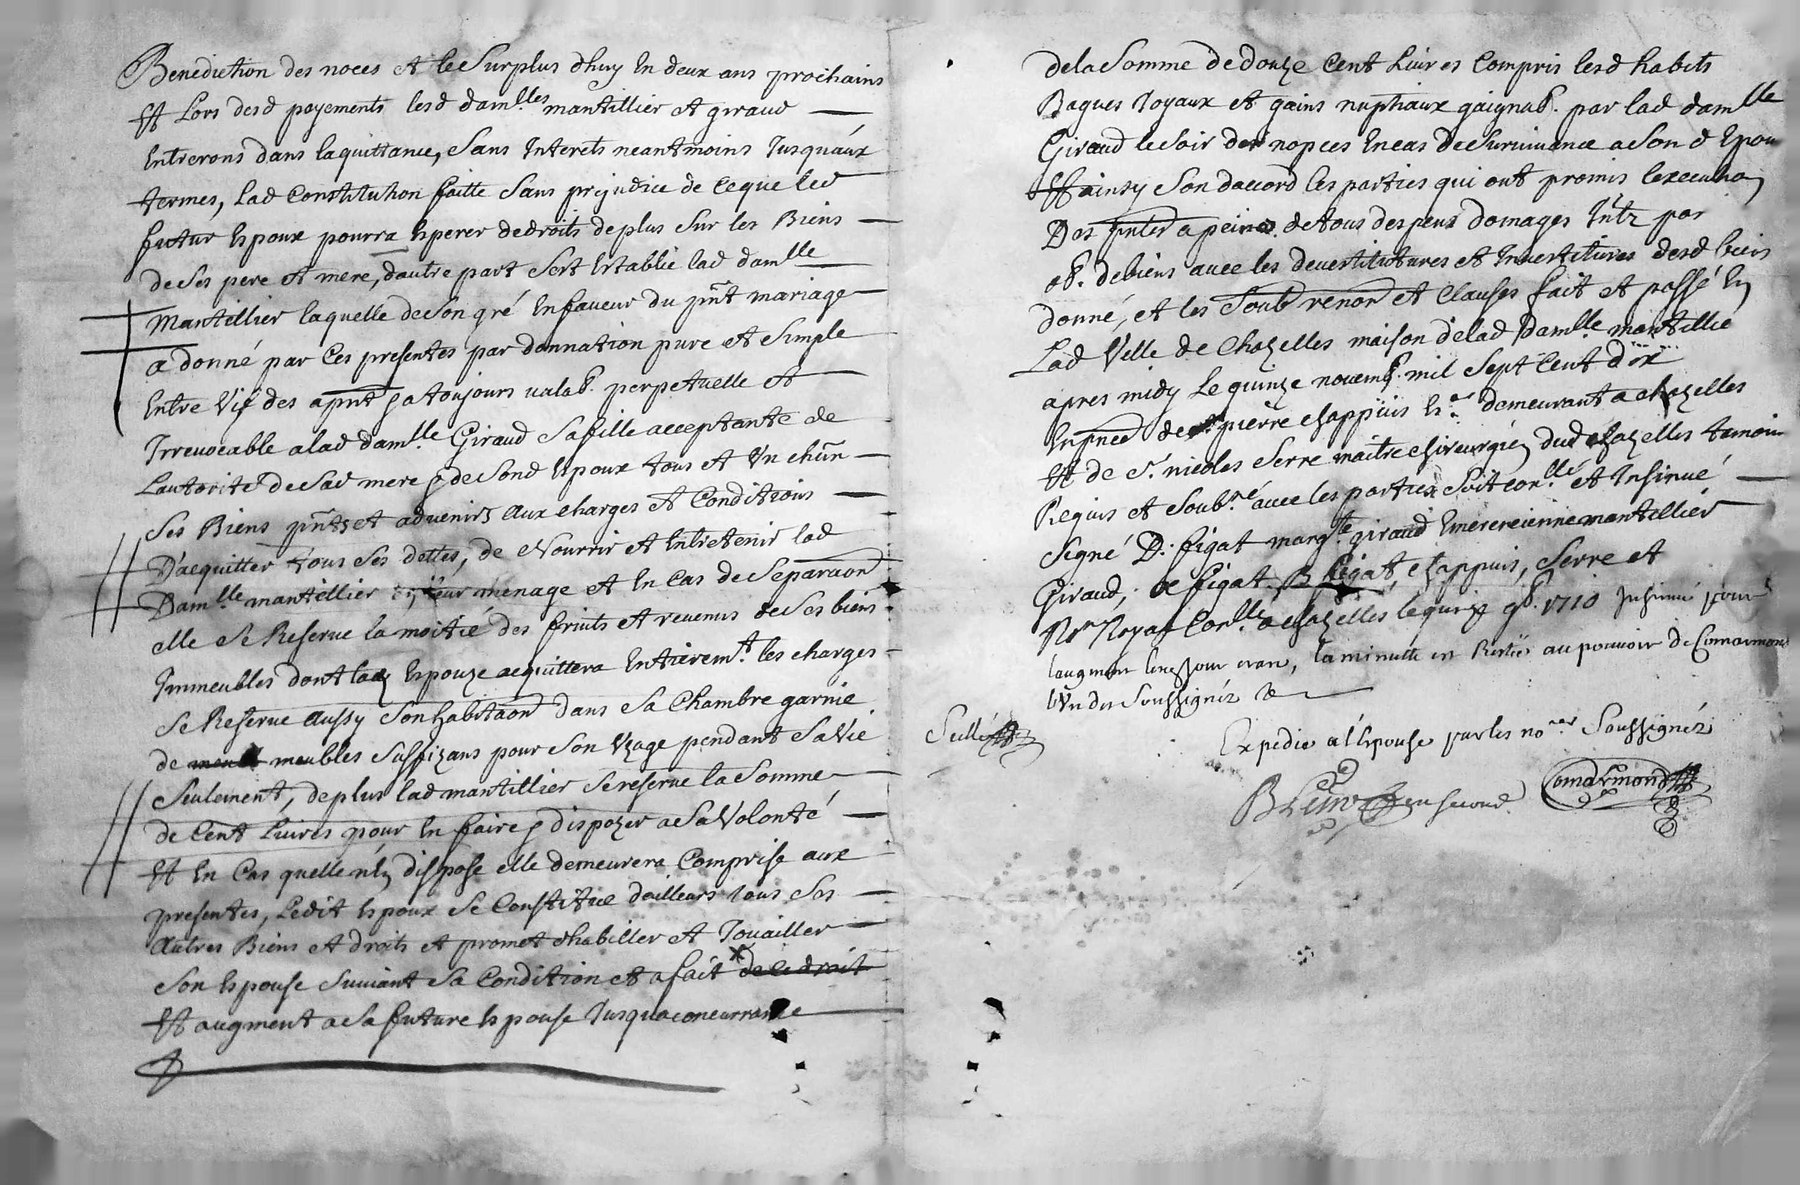 Benediction des noces et le Surplus dhuy En deux ans prochains
Et Lors desd payements lesd dam.lles mantillier et giraud
Entrerons dans laquittance, Sans Interets neantmoins Jusquaux
termes, Lad Constitution faitte Sans prejudice de Ceque led
futur Espoux pourra Esperer dedroits deplus Sur les Biens
de Ses pere et mere, dautre part Sest Establie lad damlle
Mantillier laquelle deSon gré En faveur du pnt mariage
a donné par Ces presentes par donnation pure et Simple
Entre Vif des apnt p a toujours valab. perpetuelle et
Irrevocable alad dam.lle Giraud Safille acceptante de
Lautorité deSad mere p deSond Espoux tous et Un chun
Ses Biens pnts et advenirs aux charges et Conditions
Dacquitter tous Ses dettes, de Nourrir et Entretenir lad
Dam.lle mantillier leur menage et En Cas de Separaon
elle Se Reserve la moitié des fruits et revenus deSes biens
Immeubles dont lad Espouze acquittera Entierem.t les charges
Se Reserve Aussy Son habitaon dans Sa Chambre garnie
de meubles Suffizans pour Son Uzage pendant SaVie
Seulement, deplus lad mantillier Sereserve la Somme
de Cent Livres pour En faire p dispozer aSaVolonté
Et En Cas quelle nEn dispose elle demeurera Comprise aux
presentes, Ledit Espoux Se Constitue dailleurs tous Ses
Autres Biens et droits et promet dhabiller et Jouailler
Son Espouse Suivant Sa Condition et a fait de ce droit
Et augment aSa future Espouse Jusquaconcurrance
dela Somme de douze Cent Livres Compris lesd habits
Bagues Joyaux et gains nuptiaux gaignab. par lad damlle
Giraud leSoir des nopces En cas deSurvivance aSon d Epou
Et ainsy Son daccord les parties qui ont promis lexecution
Des pntes a peine de tous despens domages Intz par
ob. debiens avec les devestitutures et Investitures desd biens
donné, et les Soub renon et Clauses fait et passé En
Lad Ville de Chazelles maison delad Damlle mantillie
apres midy Le quinze novemb. mil Sept Cent dix
En pnce de Sr. pierre chappuis demeurant a chazelles
Et de Sr. nicolas Serre maitre chirurgien dud chazelles temoin
Requis et Soub.né avec les parties Soit con.llé et Insinué
Signé D. figat marg.te giraud Emerencienne mantillier
Giraud, de figat B figat, chappuis, Serre et
Nre Royal Con.llé a chazelles le quinze 9b. 1710 Insinué pour
laugment lesd Jour et an, La minutte en Restée au pouvoir de Comarmond
lUn des Soussignés
Sellé
Expedie a lEspouse par les no.res Soussignés
en second Comarmond